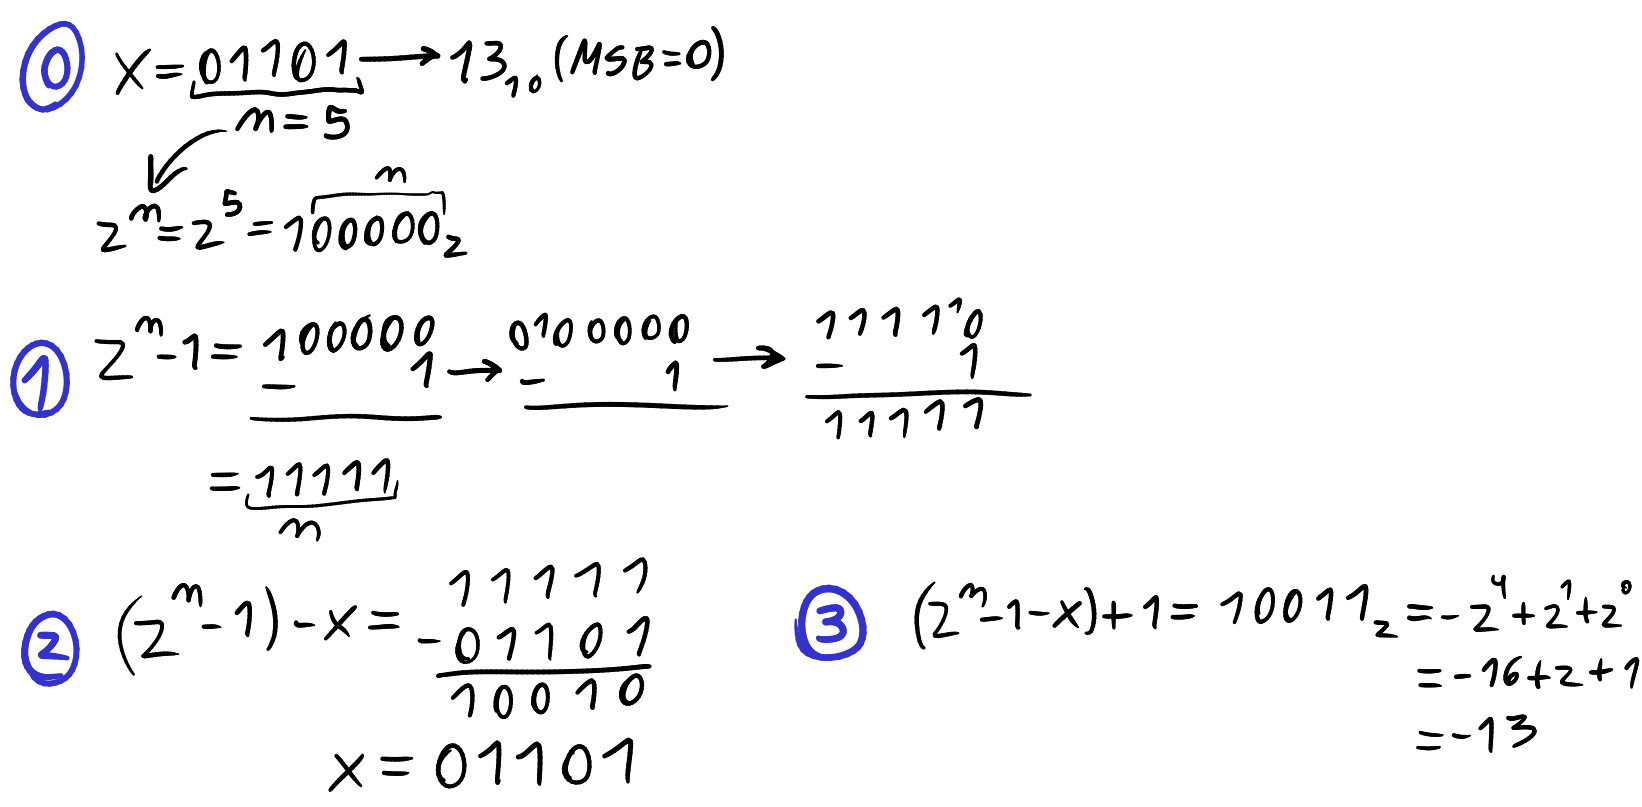 0 x = 01101 → 13₁₀ (MSB=0)
n = 5
n
2ⁿ = 2⁵ = 100000₂
1 2ⁿ - 1 = 100000 → 0100000 → 111110
- 1 - 1 - 1
11111
= 11111
n
2 (2ⁿ - 1) - x = 11111
- 01101
10010
x = 01101
3 (2ⁿ - 1 - x) + 1 = 10011₂ = - 2⁴ + 2¹ + 2⁰
= - 16 + 2 + 1
= - 13